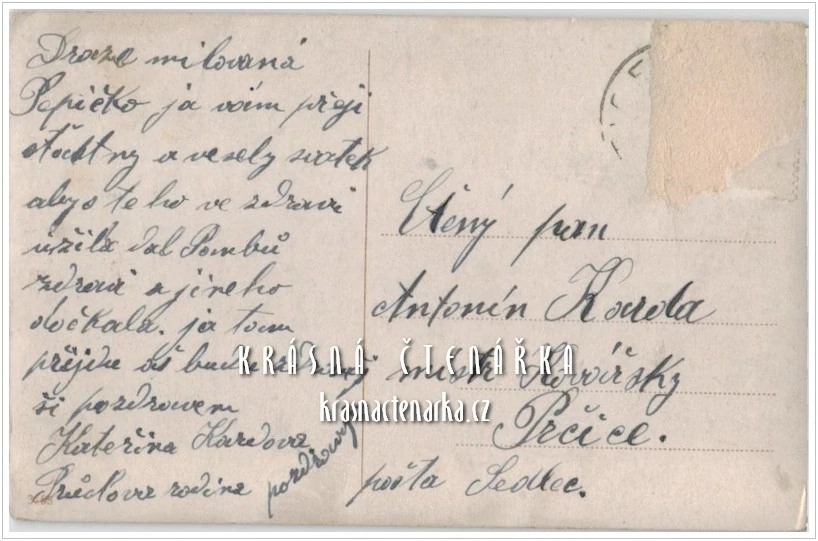 Draze milovaná
Pepičko ja vám přeji
štastny a vesely svatek
abyste ho ve zdravi
užila dal Pambů
zdravi a jineho
dočkala. ja tam
přijdu až budu
ši pozdravem
Kateřina Kardova
rodina pozdravuj
Ctěný pan
Antonín Karda
mistr Kovářsky
Prčice.
pošta Sedlec.
KRÁSNÁ ČTENÁŘKA
krasnactenarka.cz